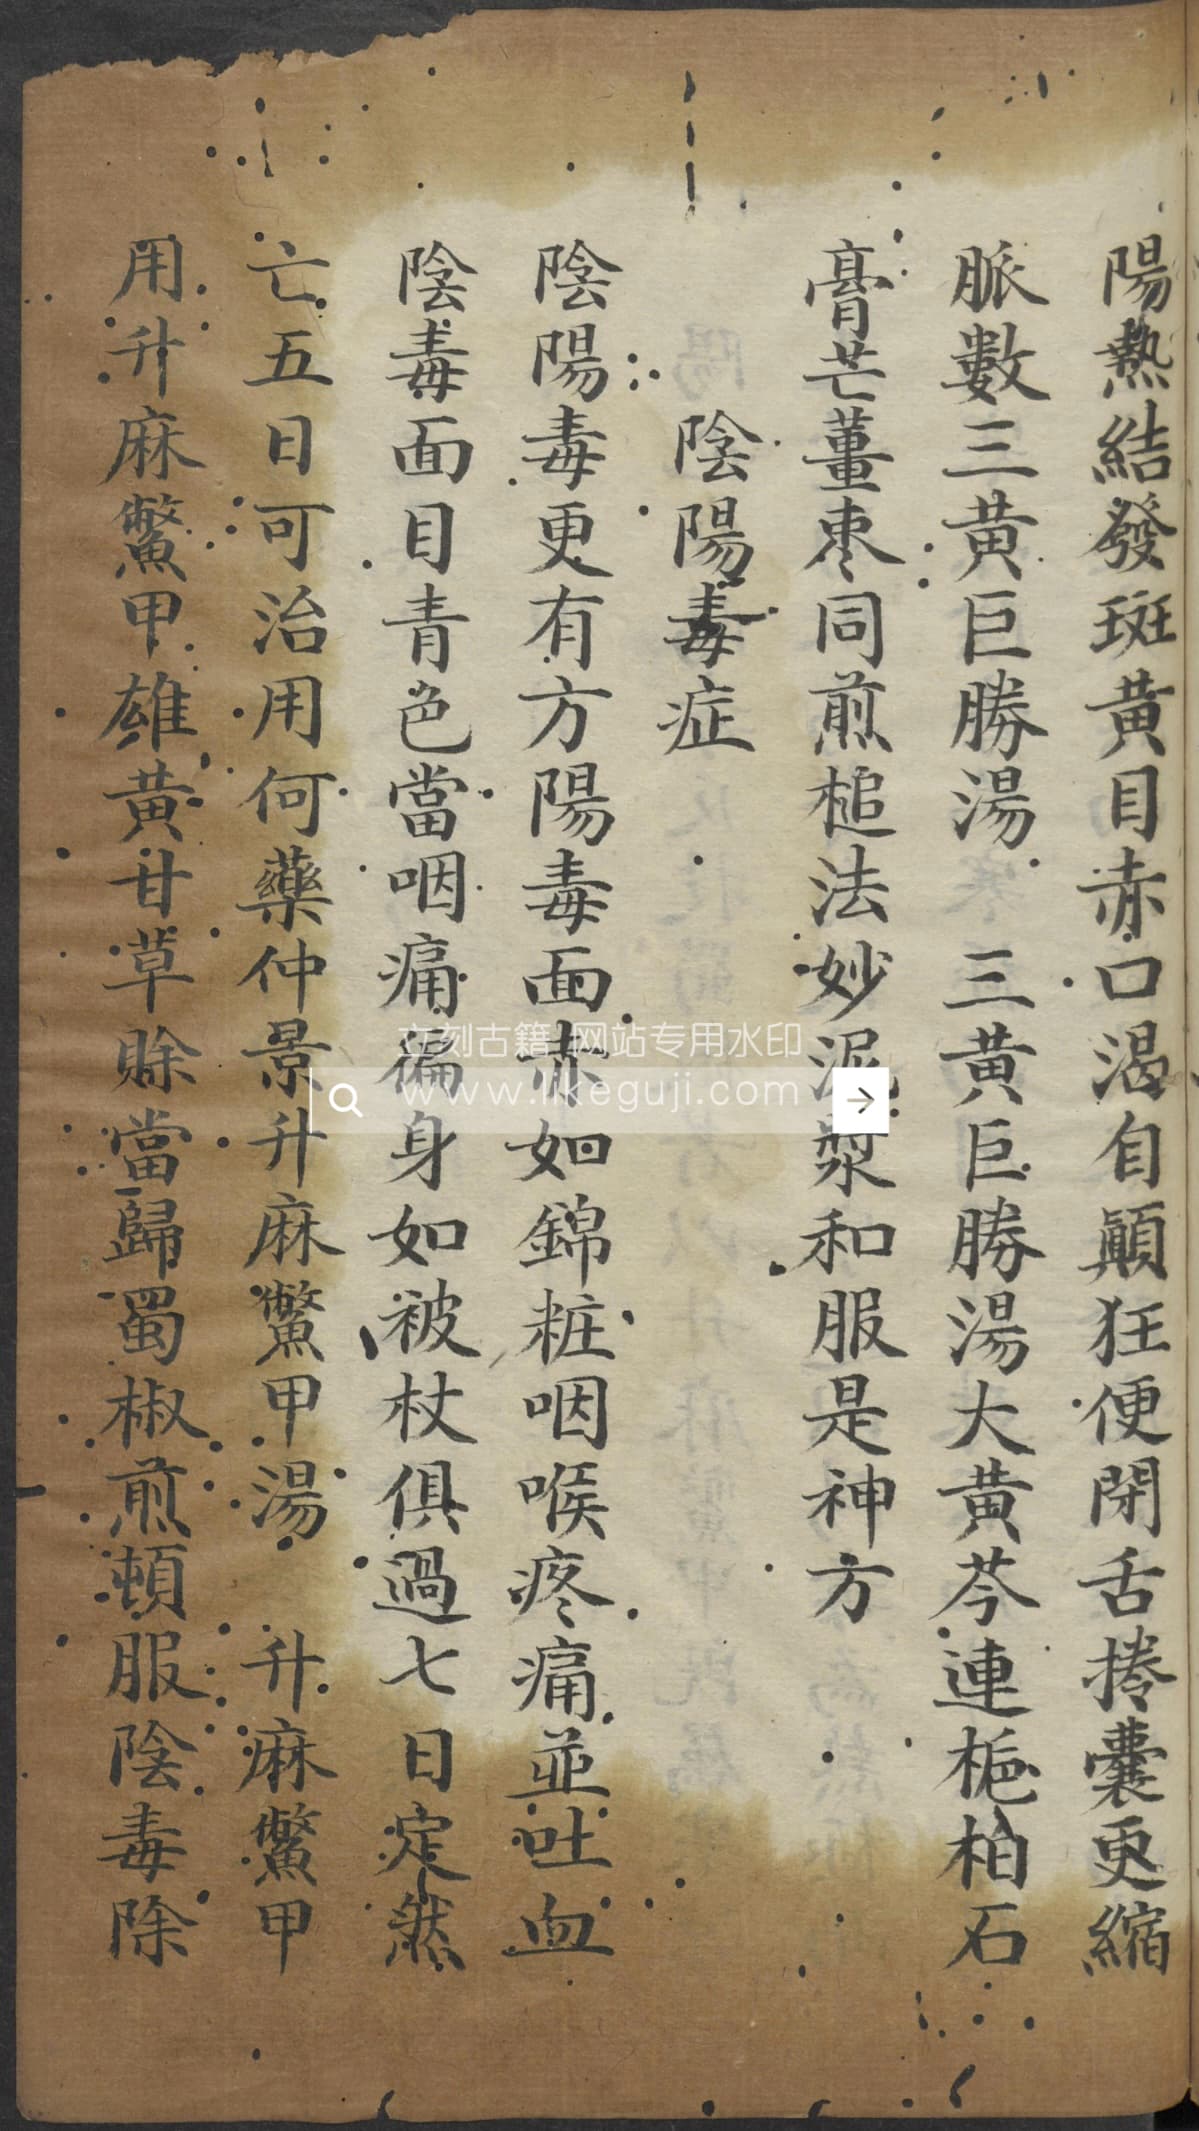 陽熱結發斑黃目赤口渴自顚狂便閉舌捲囊更縮
脈數三黃巨勝湯　三黃巨勝湯大黃芩連梔柏石
膏芒薑棗同煎槌法妙泥漿和服是神方
陰陽毒症
陰陽毒更有方陽毒面赤如錦粧咽喉疼痛並吐血
陰毒面目青色當咽痛徧身如被杖俱過七日定然
亡五日可治用何藥仲景升麻鱉甲湯　升麻鱉甲
用升麻鱉甲雄黃甘草除當歸蜀椒煎頓服陰毒除
立刻古籍 网站专用水印
www.likeguji.com